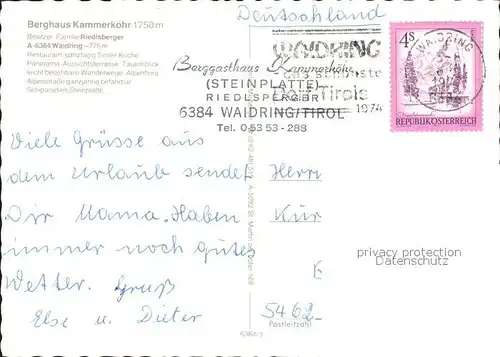 Berghaus Kammerköhr 1750 m
Besitzer: Familie Riedlsberger
A-6384 Waidring – 775 m
Restaurant, ganztägig Tiroler Küche
Panorama-Aussichtsterrasse, Tauernblick
leicht begehbare Wanderwege, Alpenflora
Alpenstraße ganzjährig befahrbar
Schiparadies Steinplatte.
Deutschland
WAIDRING
das schönste
Dorf Tirols
1974
Berggasthaus Kammerköhr
(STEINPLATTE)
RIEDLSPERGER
6384 WAIDRING/TIROL
Tel. 0 53 53 - 288
4S
WAIDRING
REPUBLIK ÖSTERREICH
Viele Grüsse aus
dem Urlaub sendet
Dir Mama. Haben
immer noch gutes
Wetter. Gruß
Else u. Dieter
Herrn
Kur
E
5462
Postleitzahl
privacy protection
Datenschutz